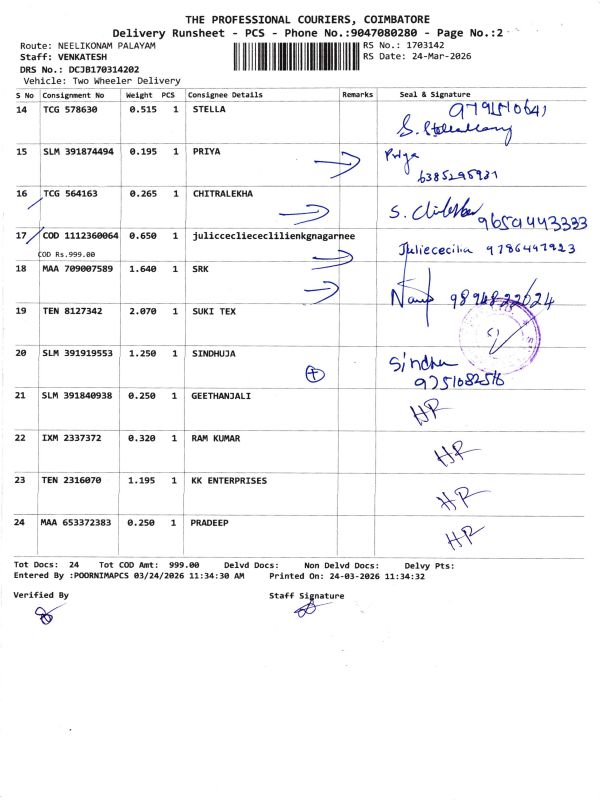 THE PROFESSIONAL COURIERS, COIMBATORE
Delivery Runsheet - PCS - Phone No.:9047080280 - Page No.:2
Route: NEELIKONAM PALAYAM RS No.: 1703142
Staff: VENKATESH RS Date: 24-Mar-2026
DRS No.: DCJB170314202
Vehicle: Two Wheeler Delivery
S No Consignment No Weight PCS Consignee Details Remarks Seal & Signature
14 TCG 578630 0.515 1 STELLA
15 SLM 391874494 0.195 1 PRIYA Priya
6385295931
16 TCG 564163 0.265 1 CHITRALEKHA S.
9659443333
17 COD 1112360064 0.650 1 juliccecliececlilienkgnagarnee
COD Rs.999.00 Juliececilia 9786497923
18 MAA 709007589 1.640 1 SRK
9894822024
19 TEN 8127342 2.070 1 SUKI TEX
20 SLM 391919553 1.250 1 SINDHUJA Sindhu
9751082516
21 SLM 391840938 0.250 1 GEETHANJALI HR
22 IXM 2337372 0.320 1 RAM KUMAR HR
23 TEN 2316070 1.195 1 KK ENTERPRISES HR
24 MAA 653372383 0.250 1 PRADEEP HR
Tot Docs: 24 Tot COD Amt: 999.00 Delvd Docs: Non Delvd Docs: Delvy Pts:
Entered By :POORNIMAPCS 03/24/2026 11:34:30 AM Printed On: 24-03-2026 11:34:32
Verified By Staff Signature